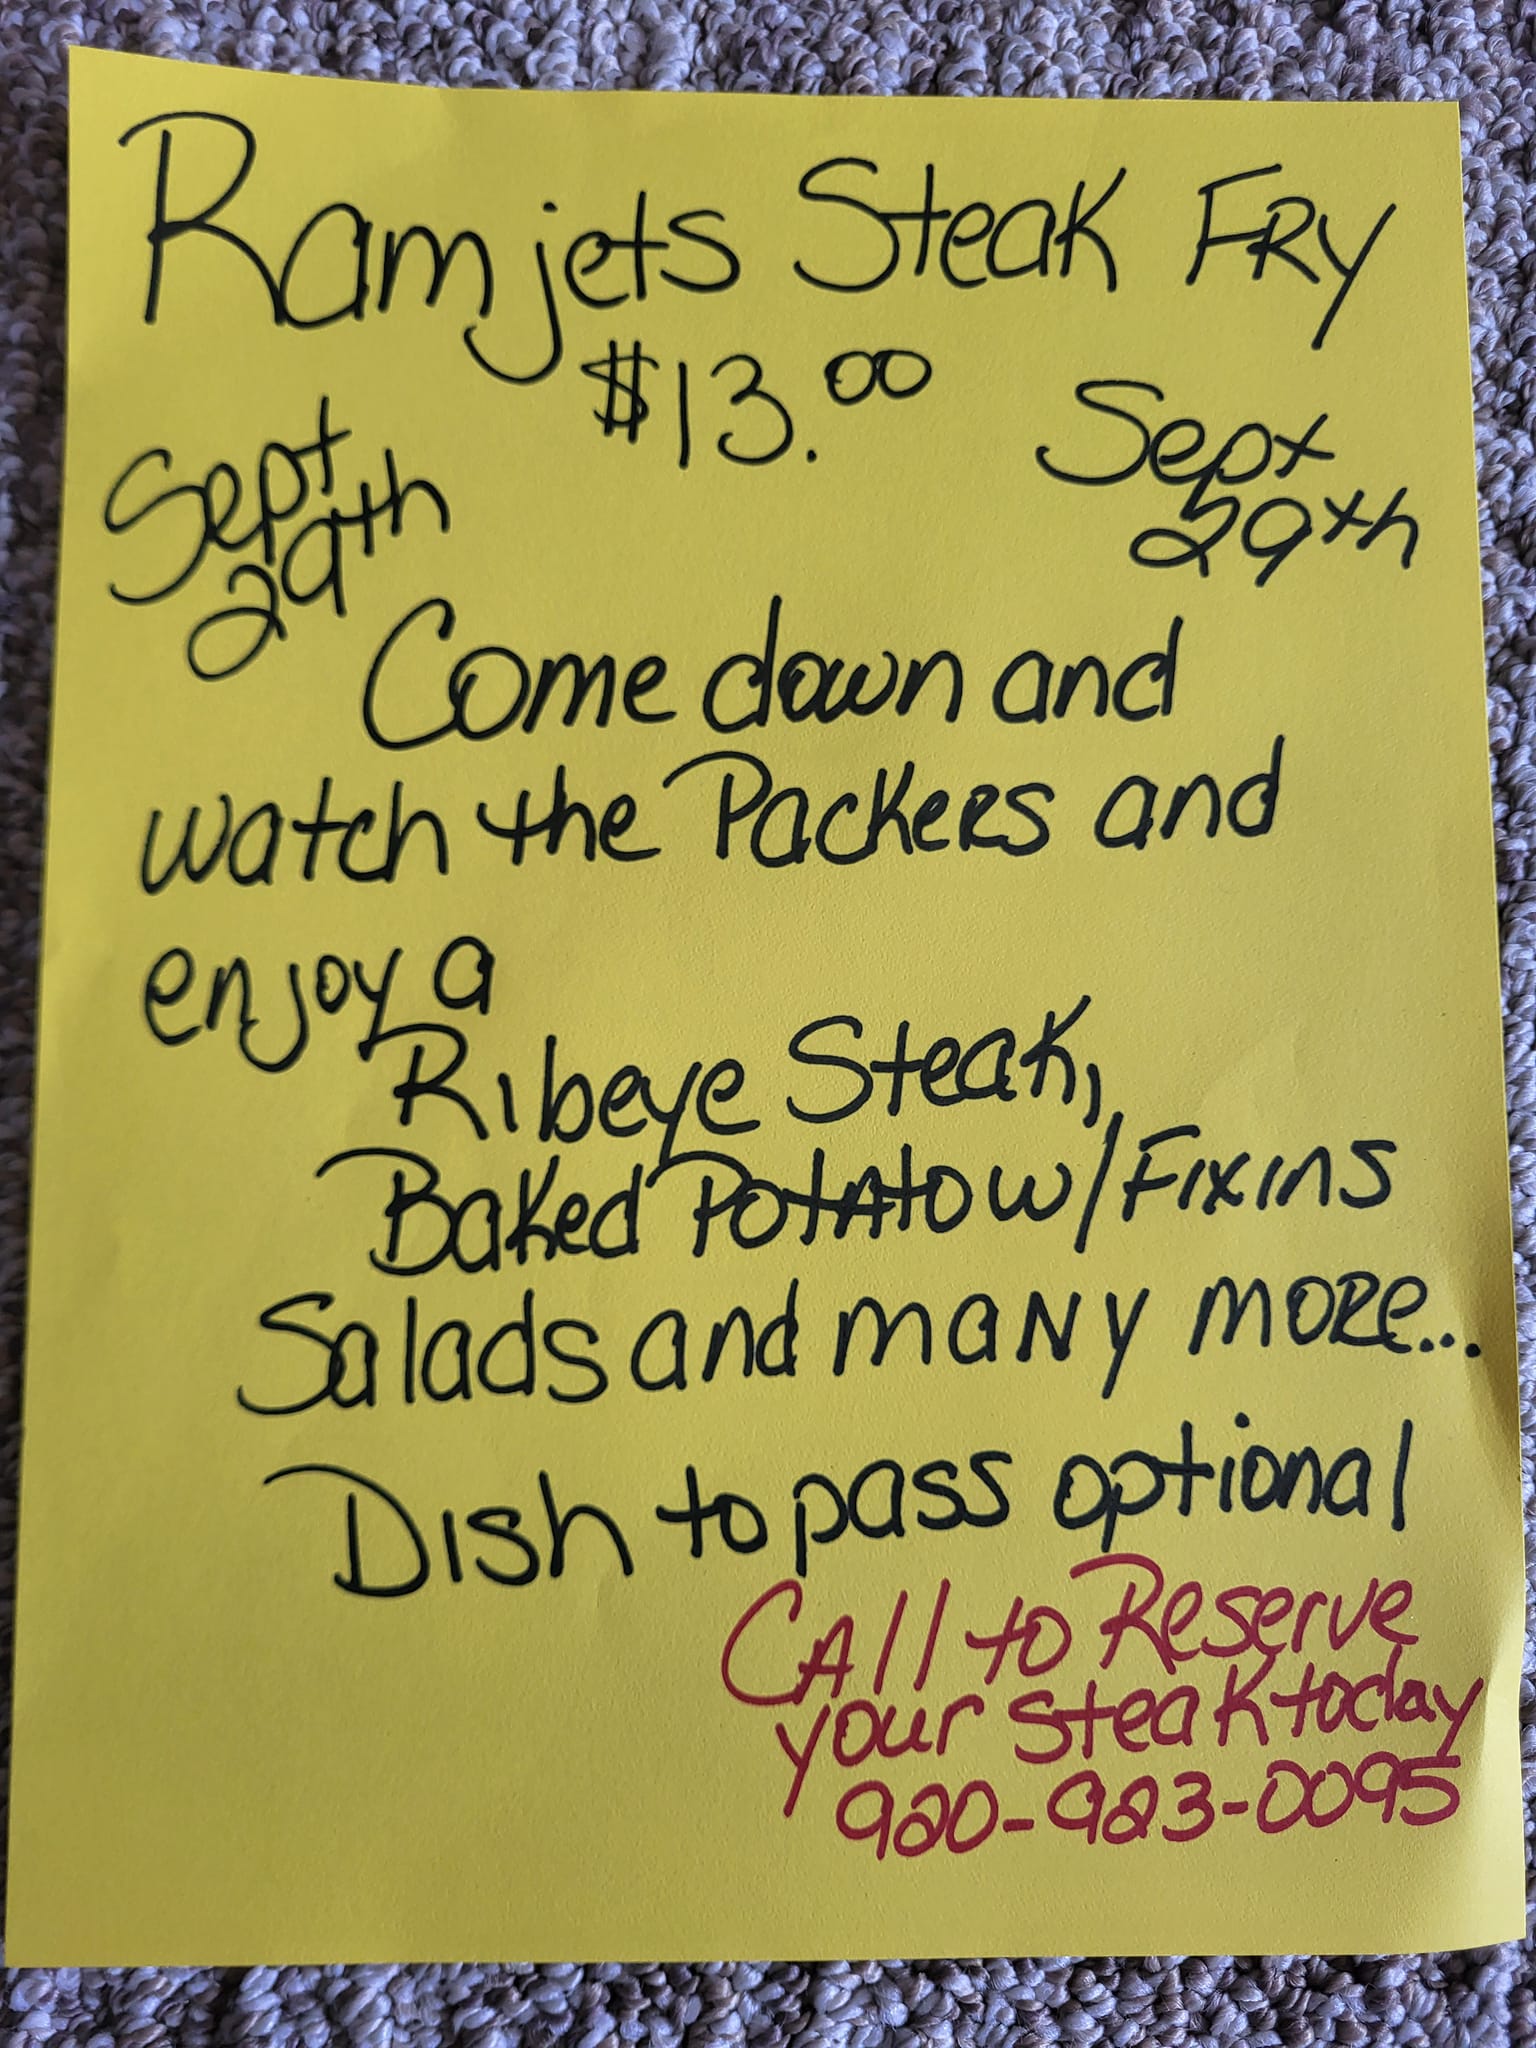 Ramjets Steak FRY
$13.00
Sept
29th
Sept
29th
Come down and
watch the Packers and
enjoy a
Ribeye Steak,
Baked Potato w/Fixins
Salads and many more...
Dish to pass optional
Call to Reserve
your steak today
920-923-0095